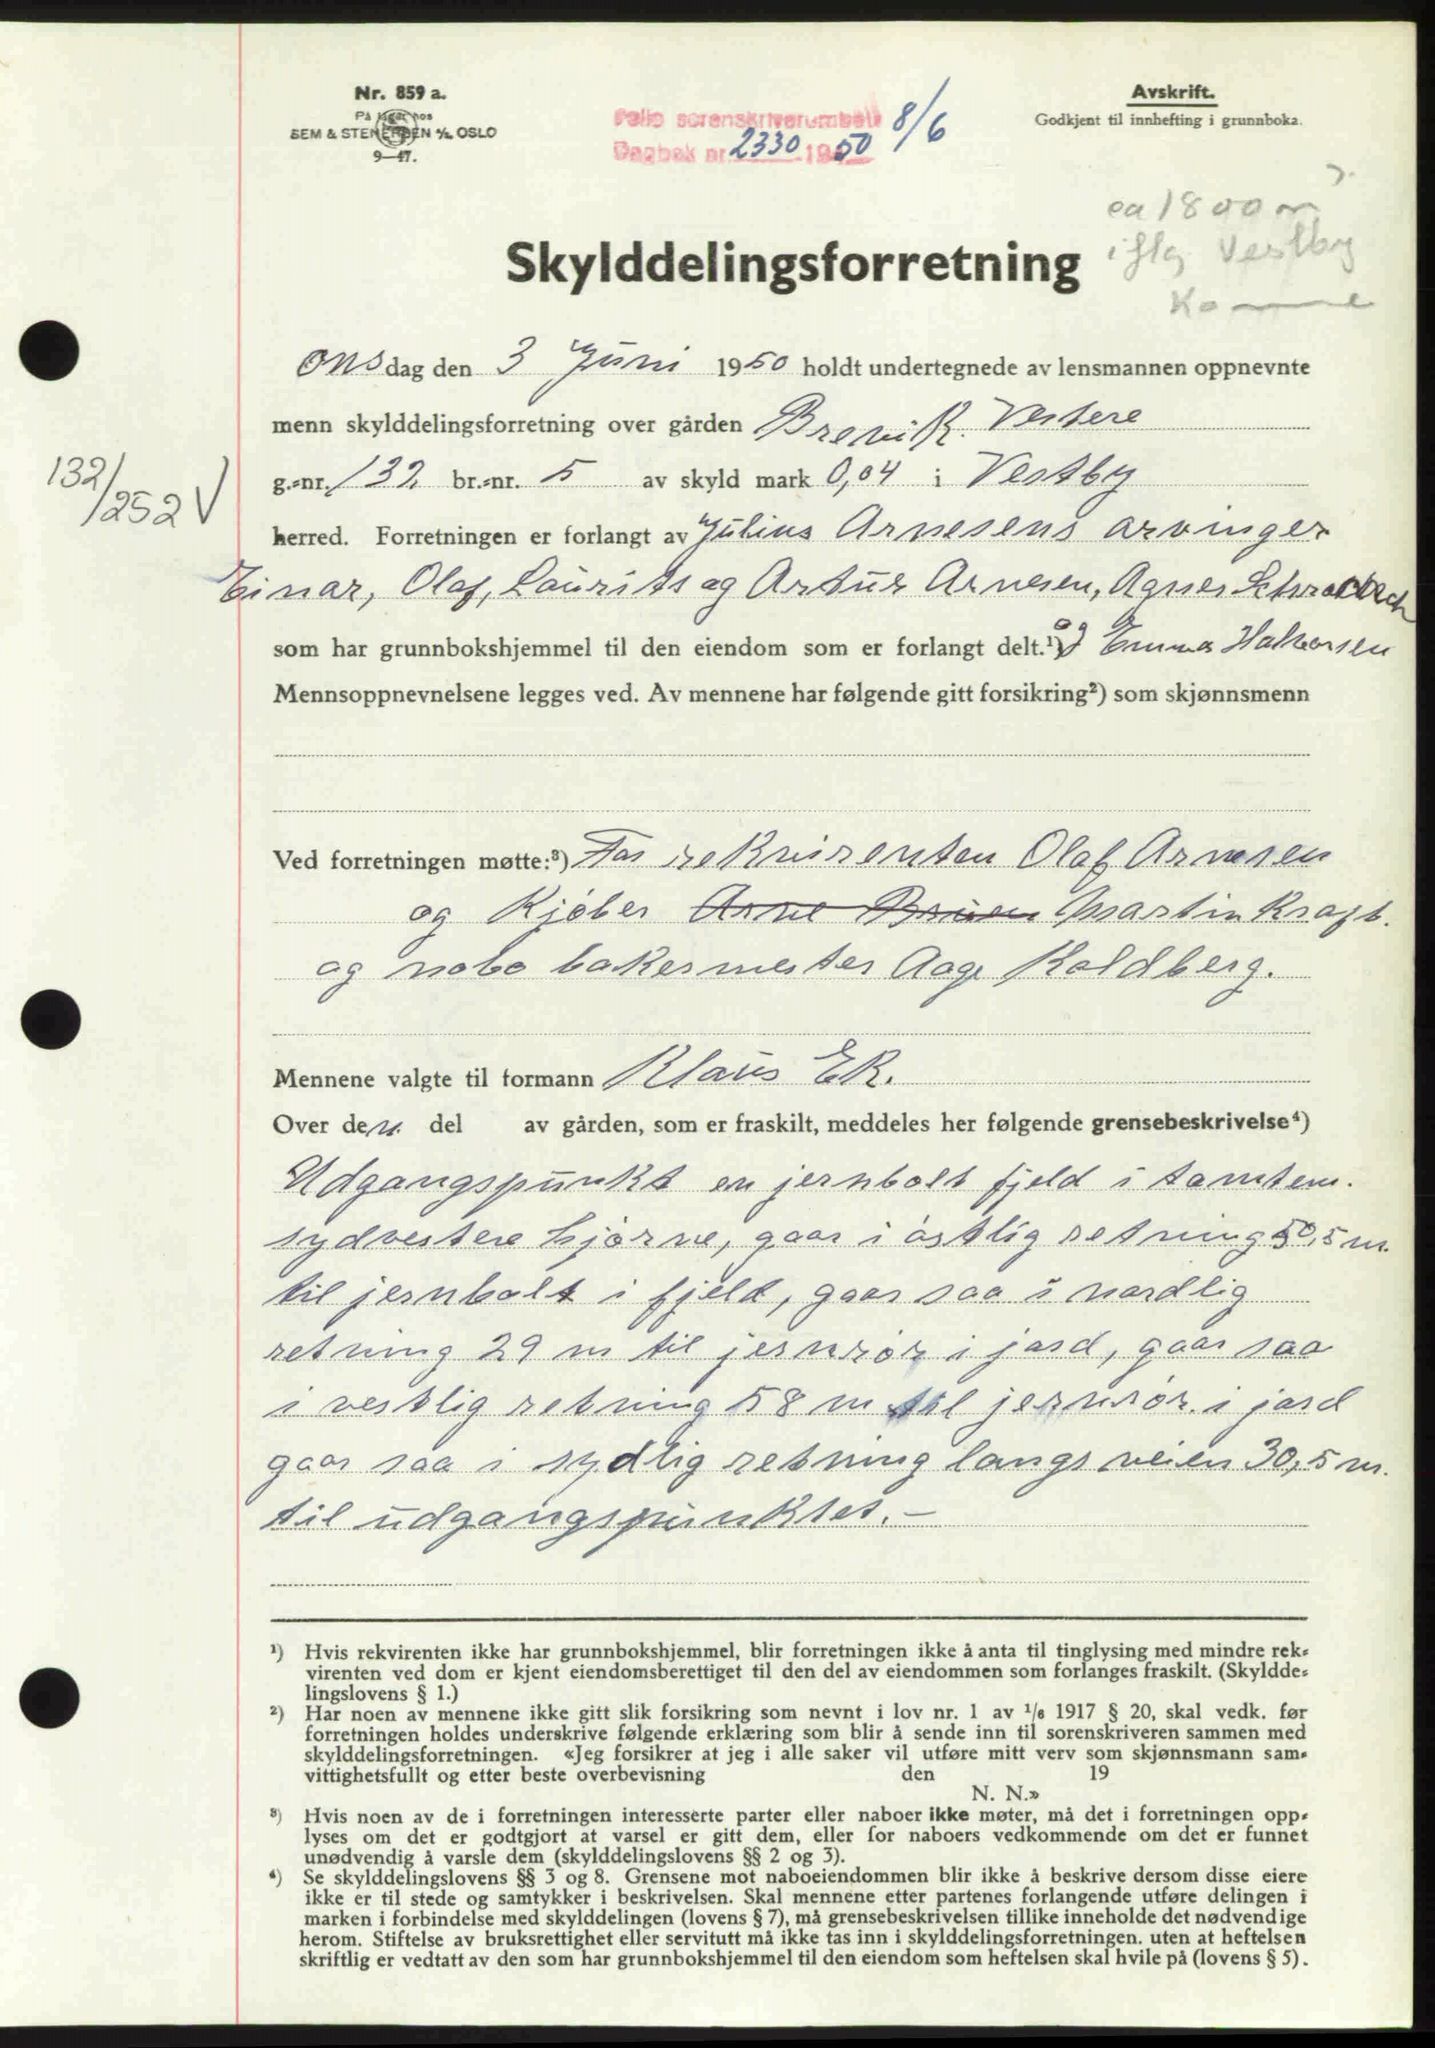 Nr. 859 a.
På lager hos
SEM & STENERSEN A/S OSLO
9—47.
Follo sorenskriverembete
Dagbok nr. 2330 1950 8/6
Avskrift.
Godkjent til innhefting i grunnboka.
ca 1800 m².
iflg Vestby
Komme
Skylddelingsforretning
onsdag den 3 Juni 1950 holdt undertegnede av lensmannen oppnevnte
menn skylddelingsforretning over gården Brevik Vestere
132/252 V
g.-nr. 132 br.-nr. 5 av skyld mark 0,04 i Vestby
herred. Forretningen er forlangt av Julius Arnesens arvinger
Einar, Olaf, Laurits og Artur Arnesen, Agnes
som har grunnbokshjemmel til den eiendom som er forlangt delt.¹) og Emma Halvorsen
Mennsoppnevnelsene legges ved. Av mennene har følgende gitt forsikring²) som skjønnsmenn
Ved forretningen møtte:³) For rekvirenten Olaf Arnesen
og Kjøber Arne Bruen Martin Kragt.
og nabo bakermester Aage Koldberg.
Mennene valgte til formann Klaus Ek.
Over den del av gården, som er fraskilt, meddeles her følgende grensebeskrivelse⁴)
Udgangspunkt en jernbolt fjeld i tomten.
sydvestere hjørne, gaar i østlig retning 50,5 m.
til jernbolt i fjeld, gaar saa i nordlig
retning 29 m til jernrør i jord, gaar saa
i vestlig retning 58 m til jernrør i jord
gaar saa i sydlig retning langs veien 30,5 m.
til udgangspunktet.–
¹) Hvis rekvirenten ikke har grunnbokshjemmel, blir forretningen ikke å anta til tinglysing med mindre rek-
virenten ved dom er kjent eiendomsberettiget til den del av eiendommen som forlanges fraskilt. (Skyldde-
lingslovens § 1.)
²) Har noen av mennene ikke gitt slik forsikring som nevnt i lov nr. 1 av 1/6 1917 § 20, skal vedk. før
forretningen holdes underskrive følgende erklæring som blir å sende inn til sorenskriveren sammen med
skylddelingsforretningen. «Jeg forsikrer at jeg i alle saker vil utføre mitt verv som skjønnsmann sam-
vittighetsfullt og etter beste overbevisning den 19
N. N.»
³) Hvis noen av de i forretningen interesserte parter eller naboer ikke møter, må det i forretningen opp-
lyses om det er godtgjort at varsel er gitt dem, eller for naboers vedkommende om det er funnet
unødvendig å varsle dem (skylddelingslovens §§ 2 og 3).
⁴) Se skylddelingslovens §§ 3 og 8. Grensene mot naboeiendommen blir ikke å beskrive dersom disse eiere
ikke er til stede og samtykker i beskrivelsen. Skal mennene etter partenes forlangende utføre delingen i
marken i forbindelse med skylddelingen (lovens § 7), må grensebeskrivelsen tillike inneholde det nødvendige
herom. Stiftelse av bruksrettighet eller servitutt må ikke tas inn i skylddelingsforretningen. uten at heftelsen
skriftlig er vedtatt av den som har grunnbokshjemmel til den eiendom som heftelsen skal hvile på (lovens § 5).